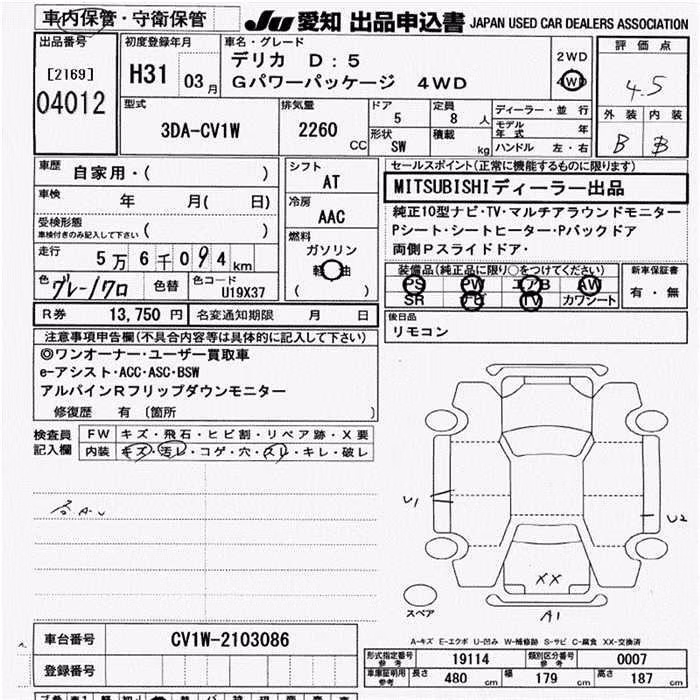 車内保管・守衛保管
JU 愛知 出品申込書 JAPAN USED CAR DEALERS ASSOCIATION
出品番号
[2169]
04012
初度登録年月
H31 03月
車名・グレード
デリカ D:5
Gパワーパッケージ 4WD
2WD
4WD
評価点
4.5
外装 内装
B B
型式
3DA-CV1W
排気量
2260 CC
ドア
5
形状
SW
定員
8 人
積載
kg
ディーラー・並行
モデル年式 年
ハンドル 左・右
車歴 自家用・( )
車検 年 月( 日)
受検形態
車検付きのみ記入して下さい ( )
走行 5万6千094km
色 グレー/クロ 色替
色コード
U19X37
シフト
AT
冷房
AAC
燃料
ガソリン
軽油
( )
セールスポイント(正常に機能するものに限ります)
MITSUBISHIディーラー出品
純正10型ナビ・TV・マルチアラウンドモニター
Pシート・シートヒーター・Pバックドア
両側Pスライドドア・
装備品(純正品に限り○をつけてください)
PS PW エアB AW
SR ナビ TV カワシート
新車保証書
有・無
R券 13,750円 名変通知期限 月 日
後日品
リモコン
注意事項申告欄(不具合内容等は具体的に記入して下さい)
◎ワンオーナー・ユーザー買取車
e-アシスト・ACC・ASC・BSW
アルパインRフリップダウンモニター
修復歴 有 〔箇所 〕
検査員記入欄
FW キズ・飛石・ヒビ割・リペア跡・X要
内装 キズ・汚レ・コゲ・穴・スレ・キレ・破レ
A-U
U1
U2
XX
A1
スペア
A-キズ E-エクボ U-凹み W-補修跡 S-サビ C-腐食 XX-交換済
車台番号 CV1W-2103086
登録番号
形式指定番号 参考 19114 類別区分番号 参考 0007
車庫証明用 参考 長さ 480 cm 幅 179 cm 高さ 187 cm